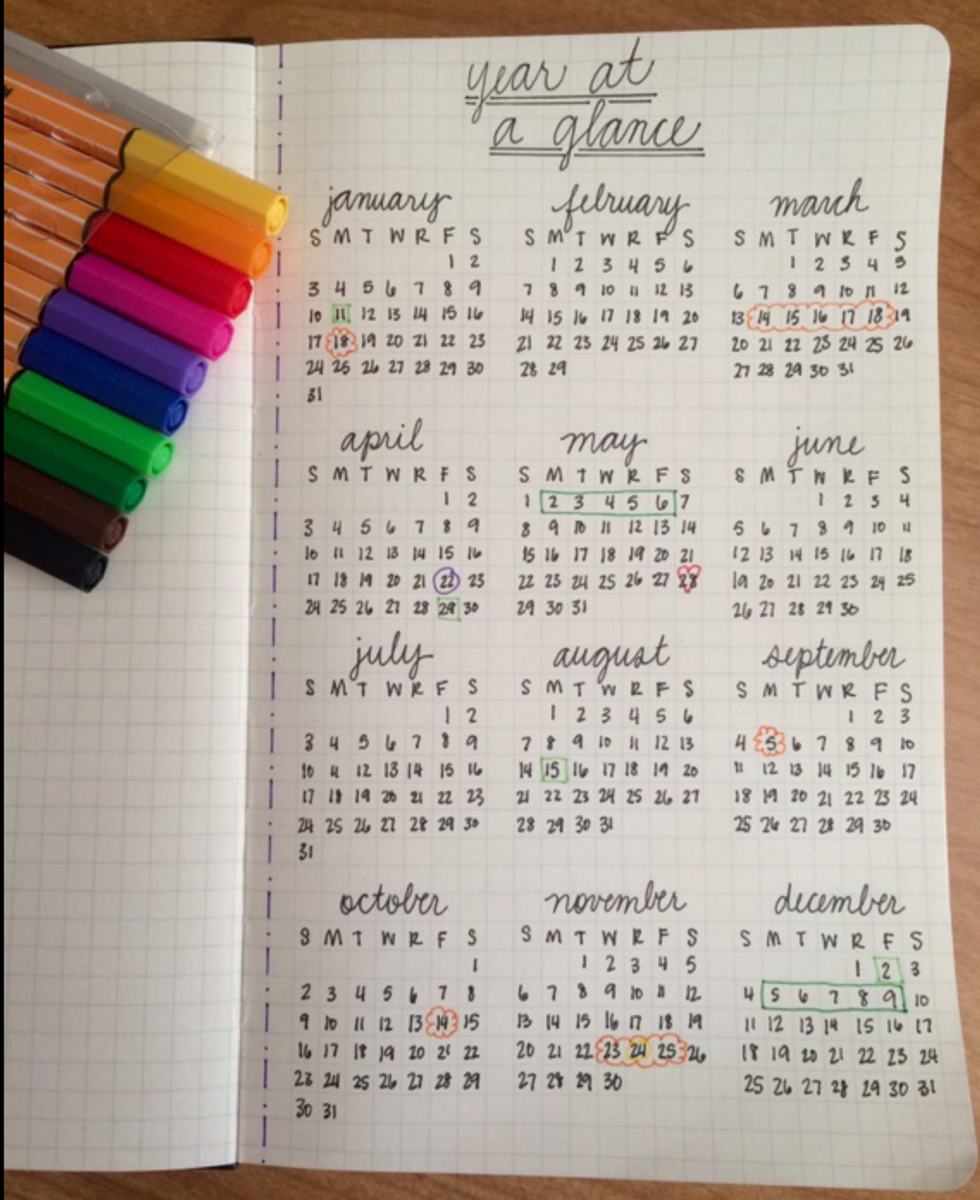 year at
a glance
january
S M T W R F S
1 2
3 4 5 6 7 8 9
10 11 12 13 14 15 16
17 18 19 20 21 22 23
24 25 26 27 28 29 30
31
february
S M T W R F S
1 2 3 4 5 6
7 8 9 10 11 12 13
14 15 16 17 18 19 20
21 22 23 24 25 26 27
28 29
march
S M T W R F S
1 2 3 4 5
6 7 8 9 10 11 12
13 14 15 16 17 18 19
20 21 22 23 24 25 26
27 28 29 30 31
april
S M T W R F S
1 2
3 4 5 6 7 8 9
10 11 12 13 14 15 16
17 18 19 20 21 22 23
24 25 26 27 28 29 30
may
S M T W R F S
1 2 3 4 5 6 7
8 9 10 11 12 13 14
15 16 17 18 19 20 21
22 23 24 25 26 27 28
29 30 31
june
S M T W R F S
1 2 3 4
5 6 7 8 9 10 11
12 13 14 15 16 17 18
19 20 21 22 23 24 25
26 27 28 29 30
july
S M T W R F S
1 2
3 4 5 6 7 8 9
10 11 12 13 14 15 16
17 18 19 20 21 22 23
24 25 26 27 28 29 30
31
august
S M T W R F S
1 2 3 4 5 6
7 8 9 10 11 12 13
14 15 16 17 18 19 20
21 22 23 24 25 26 27
28 29 30 31
september
S M T W R F S
1 2 3
4 5 6 7 8 9 10
11 12 13 14 15 16 17
18 19 20 21 22 23 24
25 26 27 28 29 30
october
S M T W R F S
1
2 3 4 5 6 7 8
9 10 11 12 13 14 15
16 17 18 19 20 21 22
23 24 25 26 27 28 29
30 31
november
S M T W R F S
1 2 3 4 5
6 7 8 9 10 11 12
13 14 15 16 17 18 19
20 21 22 23 24 25 26
27 28 29 30
december
S M T W R F S
1 2 3
4 5 6 7 8 9 10
11 12 13 14 15 16 17
18 19 20 21 22 23 24
25 26 27 28 29 30 31